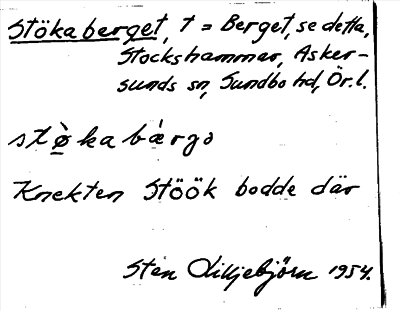 Stökaberget, t = Berget, se detta,
Stockshammar, Asker-
sunds sn, Sundbo hd, Ör. l.
stø̀kabærgə
Knekten Stöök bodde där
Sten Liljebjörn 1954.